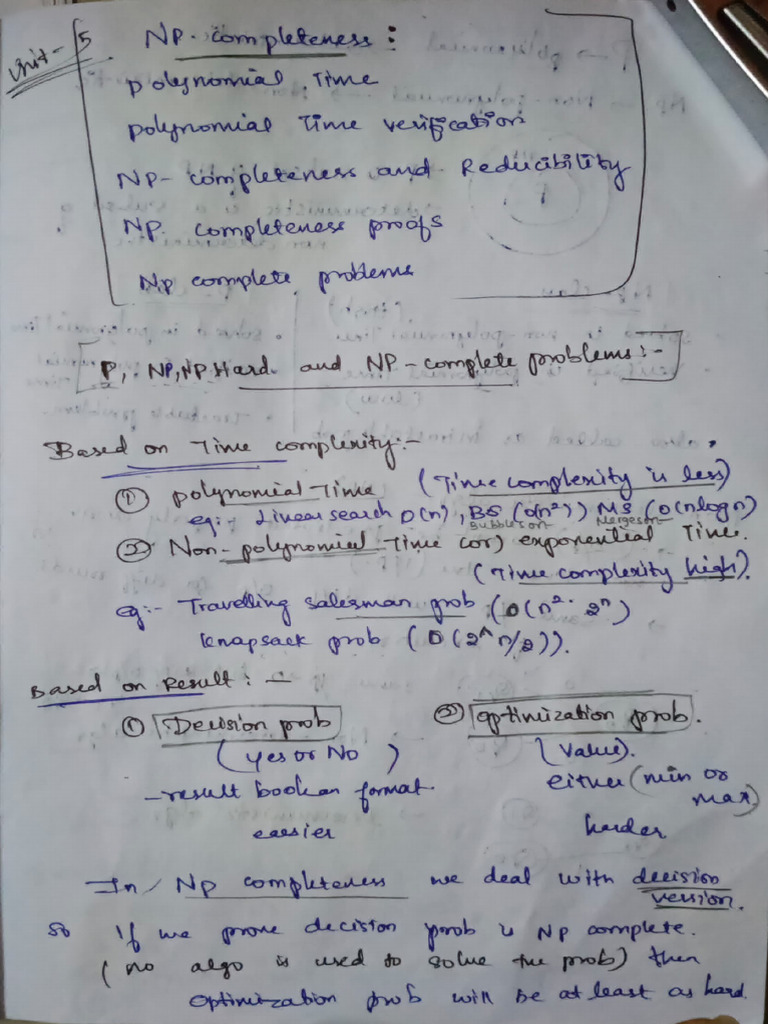 Unit - 5
NP-completeness :
polynomial Time
polynomial Time verification
NP-completeness and Reducibility
NP completeness proofs
NP complete problems
P, NP, NP Hard and NP-complete problems :-
Based on Time complexity :-
① polynomial Time (Time complexity is less)
eg:- Linear search O(n), BS (O(n²)) MS (O(nlogn)
Bubble sort Merge sort
② Non-polynomial Time (or) exponential Time.
(Time complexity high).
eg:- Travelling salesman prob (O(n²·2ⁿ)
knapsack prob (O(2^n/2)).
Based on Result : -
① Decision prob ② optimization prob.
(yes or No) (Value).
- result boolean format. either (min or max)
easier harder
In NP completeness we deal with decision version.
So if we prove decision prob is NP complete.
(no algo is used to solve the prob) then
optimization prob will be at least as hard.